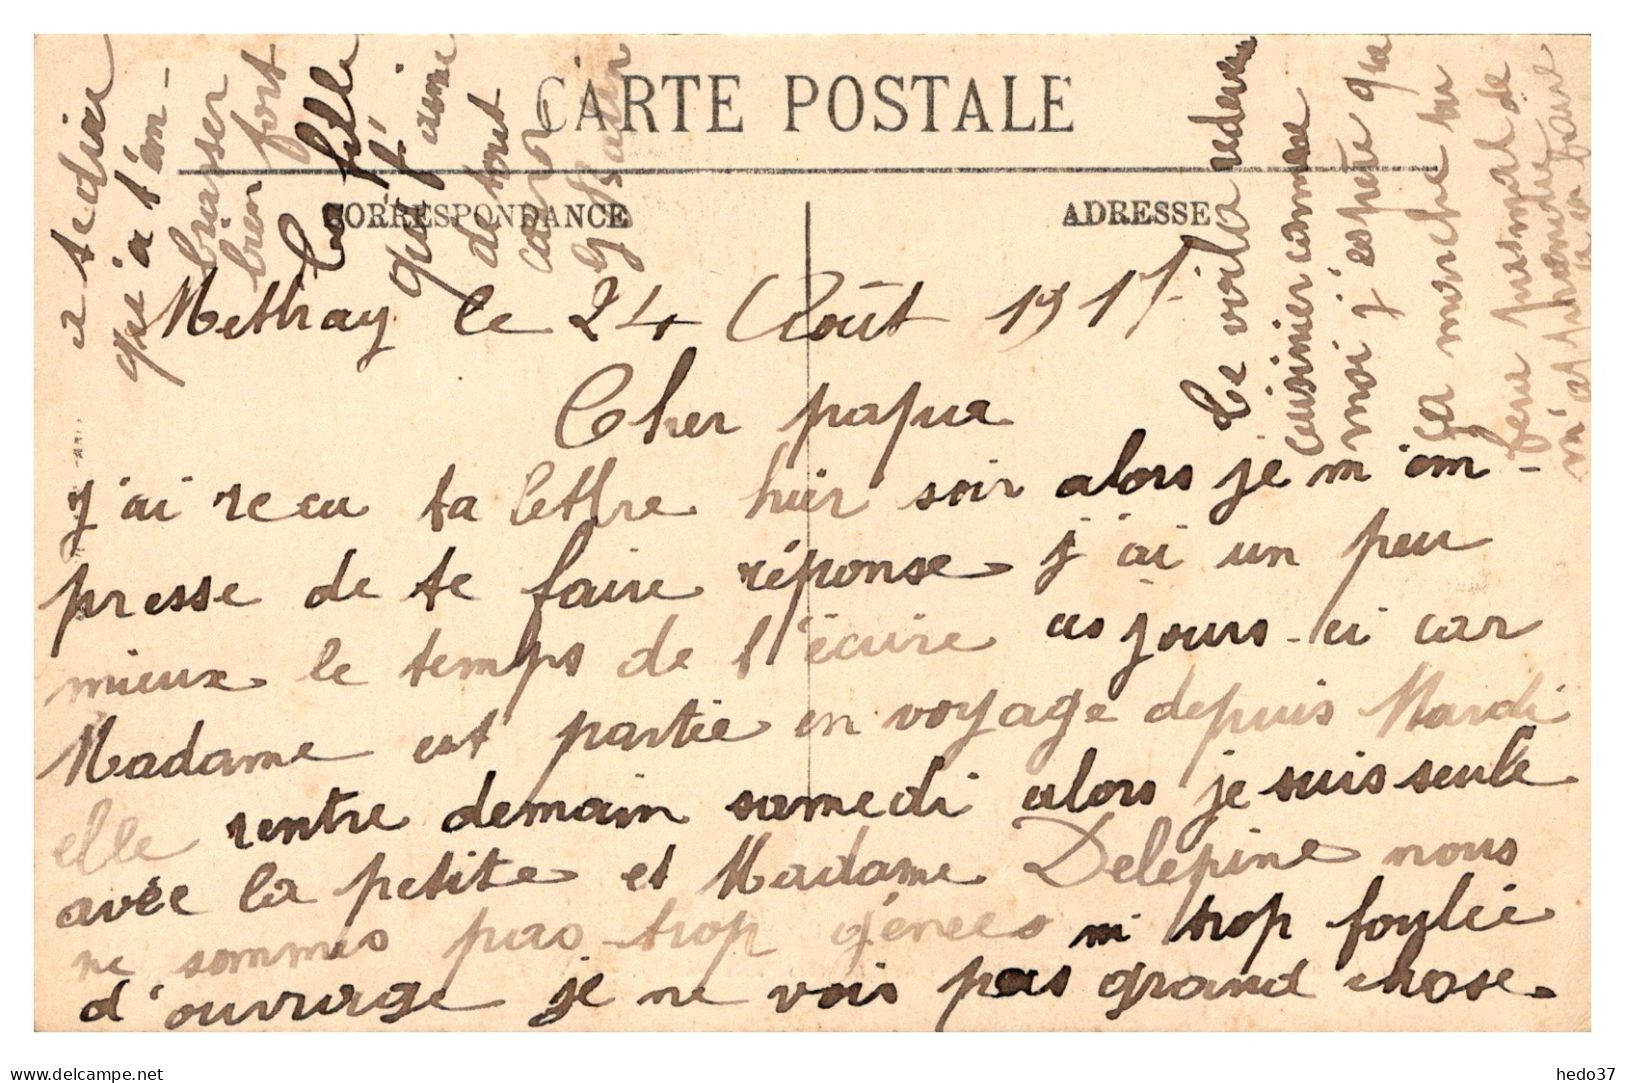 CARTE POSTALE
CORRESPONDANCE
ADRESSE
Mettray le 24 Août 1917
Cher papa
j'ai recu ta lettre hier soir alors je m'em-
presse de te faire réponse j'ai un peu
mieux le temps de t'écrire ces jours-ci car
Madame est partie en voyage depuis Mardi
elle rentre demain samedi alors je suis seule
avec la petite et Madame Delepine nous
ne sommes pas trop génees ni trop foulée
d'ouvrage je ne vois pas grand chose.
a te dire
qu'a t'em-
brasser
bien fort
ta fille
qui t'aime
de tout
cœur
Le voila redevenu
cuisinier comme
moi j'espère que
ca marche tu
feras
m'apprendre
hedo37